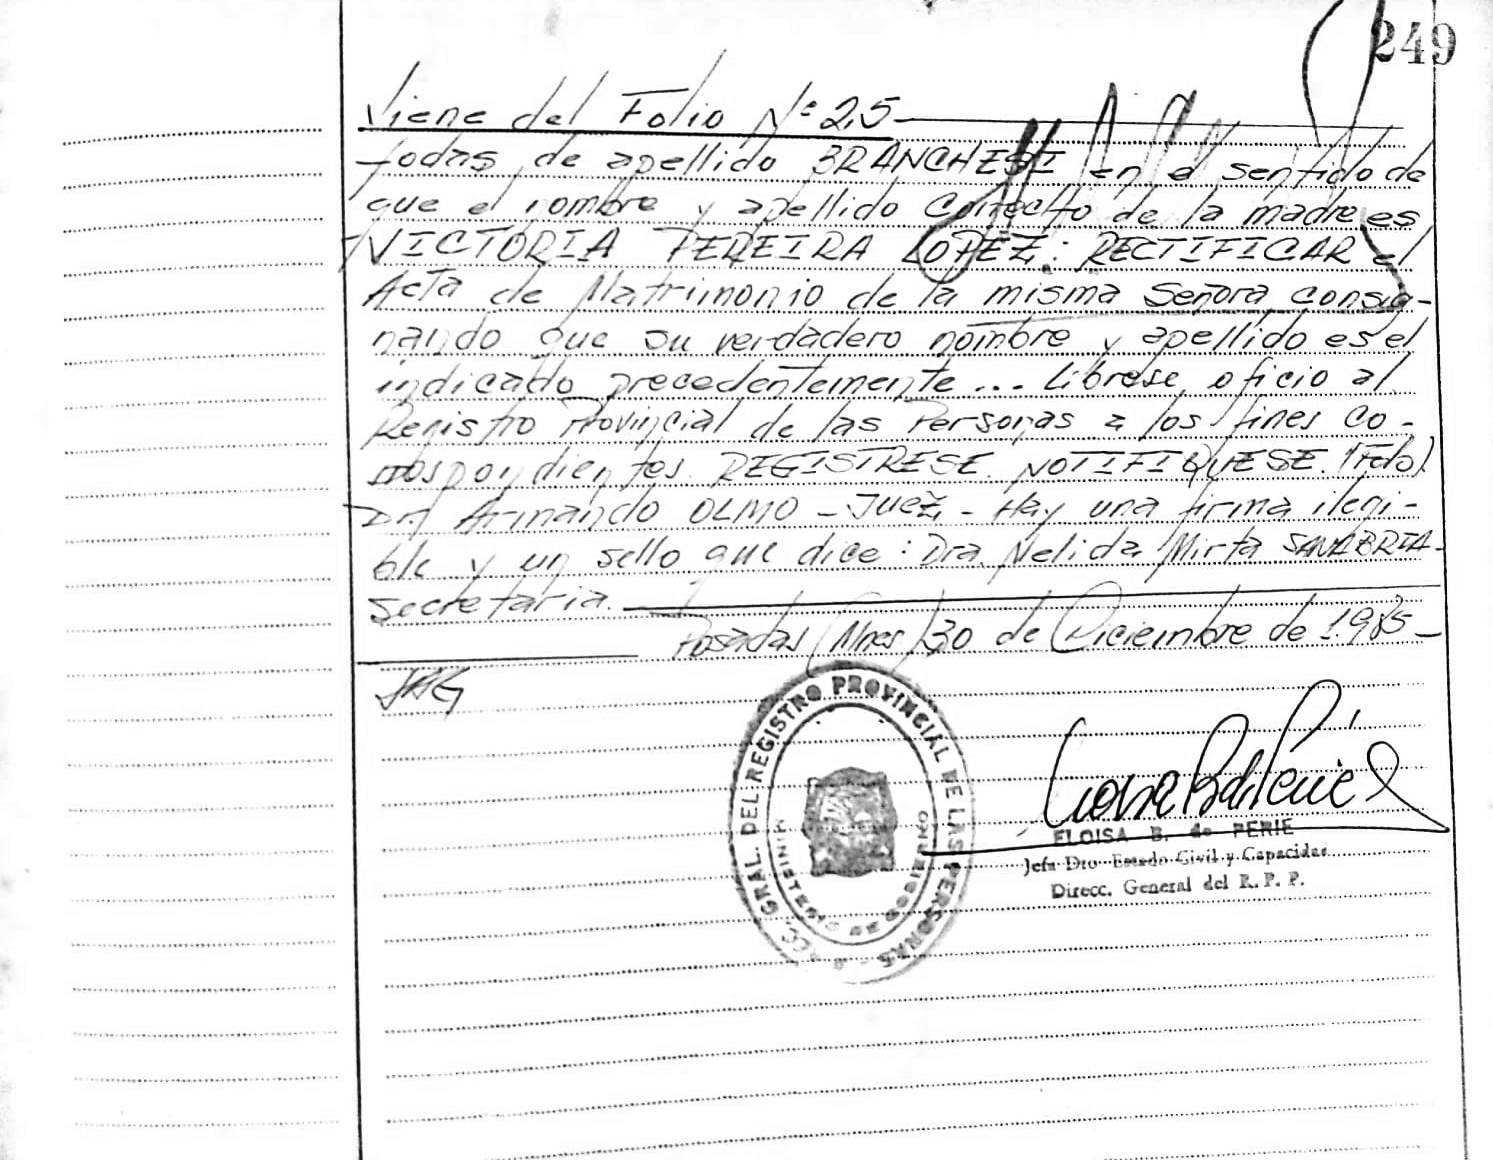 249
Viene del Folio Nº 25-
todas de apellido BRANCHESI en el sentido de
que el nombre y apellido correcto de la madre es
VICTORIA PEREIRA LOPEZ; RECTIFICAR el
Acta de Matrimonio de la misma Señora consig-
nando que su verdadero nombre y apellido es el
indicado precedentemente... Librese oficio al
Registro Provincial de las Personas a los fines co-
rrespondientes. REGISTRESE. NOTIFIQUESE. (Fdo).
Dr. Armando OLMO - Juez, - Hay una firma ilegi-
ble y un sello que dice: Dra. Nelida Mirta SANABRIA-
Secretaria.
Posadas (Mnes) 30 de Diciembre de 1985-
JAG
CC. GRAL. DEL REGISTRO PROVINCIAL DE LAS PERSONAS
MINISTERIO DE GOBIERNO
ELOISA B. de PERIE
Jefa Dto Estado Civil y Capacidad
Direcc. General del R. P. P.